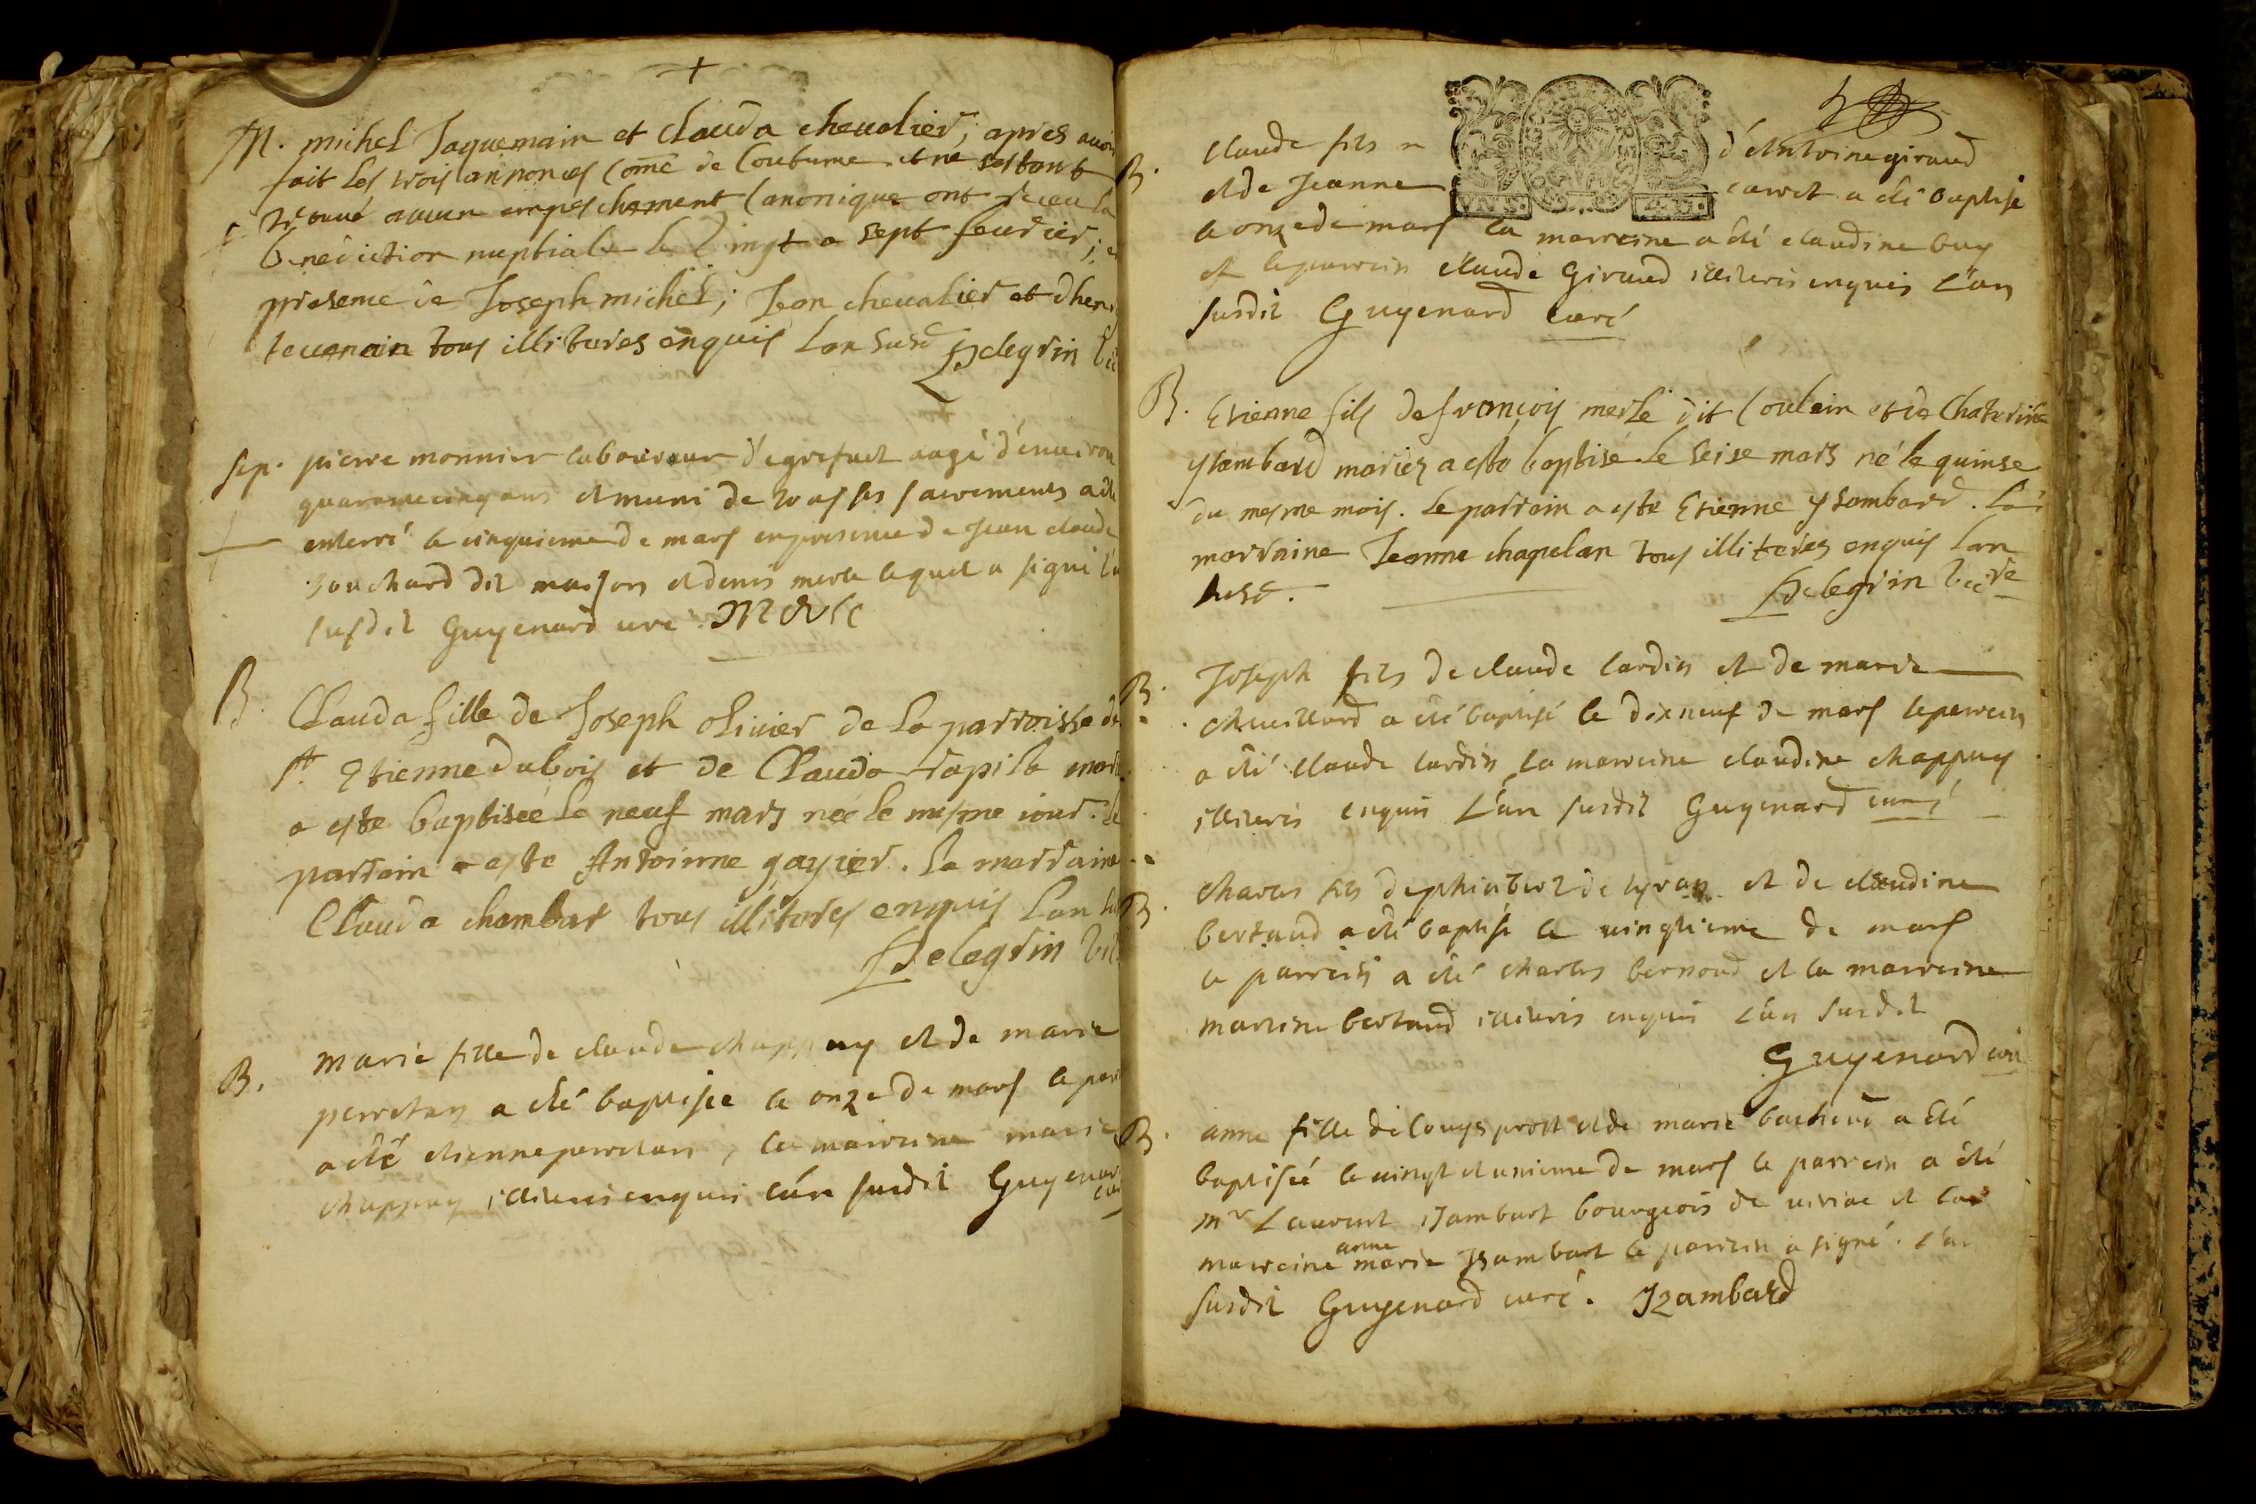 +
M. michel Jaquemain et Clauda chevalier; apres avoir
fait les trois annonces come de Coutume et ne sestant
trouué aucun empeschement Canonique ont receu la
benediction nuptiale le Vingt a sept feurier; en
presence de Joseph michel; Jean chevalier et dhenr
teuenain tous illiteres enquis Lan susd Pelegrin vic
sep. pierre monnier laboureur d'egrefeuil aagé d'enuiron
quarantecinq ans et muni de tous ses sacrements a été
enterré le cinquieme de mars en presence de Jean claude
souchard dit maison et denis merle lequel a signé l'an
susdit Guyenard curé Merle
B. Clauda fille de Joseph oliuier de la parroisse de
st Etienne dubois et de Clauda rapile mari
a este baptisée le neuf mars née le mesme iour. le
parrain a este Antoinne gayier. la marraine
Clauda chambat tous illiteres enquis Lan sus
Pelegrin vic
B. marie fille de claude chappuy et de marie
perretan a été baptisée le onze de mars le par
a été etienne perretan, la marreine marie
chappuy illiteris enquis l'an susdit Guyenard
curé
B. Claude fils d'Antoine giraud
et de Jeanne caret a été baptisé
le onze de mars la marreine a été claudine buy
et le parrein claude Giraud illiteris enquis L'an
susdit Guyenard curé
B. Etienne fils de françois merle dit Coulain et de Chaterine
ysambard mariez a este baptisé le seise mars né le quinse
du mesme mois. le parrain a este Etienne ysambard. la
marraine Jeanne chapelan tous illiteres enquis lan
susd. Pelegrin vicre
B. Joseph fils de claude lardin et de marie
chuillard a été baptisé le dixneuf de mars le parrein
a été claude lardin la marreine claudine chappuy
illiteris enquis L'an susdit Guyenard curé
B. charles fils de philibert de lyran et de claudine
bertaud a été baptisé le vingtieme de mars
le parrein a été charles bernoud et la marreine
marine bertaud illiteris enquis L'an susdit
Guyenard curé
B. anne fille de louys prost et de marie a été
baptisée le vingt et unieme de mars le parrein a été
mr Laurent isambart bourgeois de uiriac et la
marreine anne marie Isambart le parrein a signé. L'an
susdit Guyenard curé. Izambard